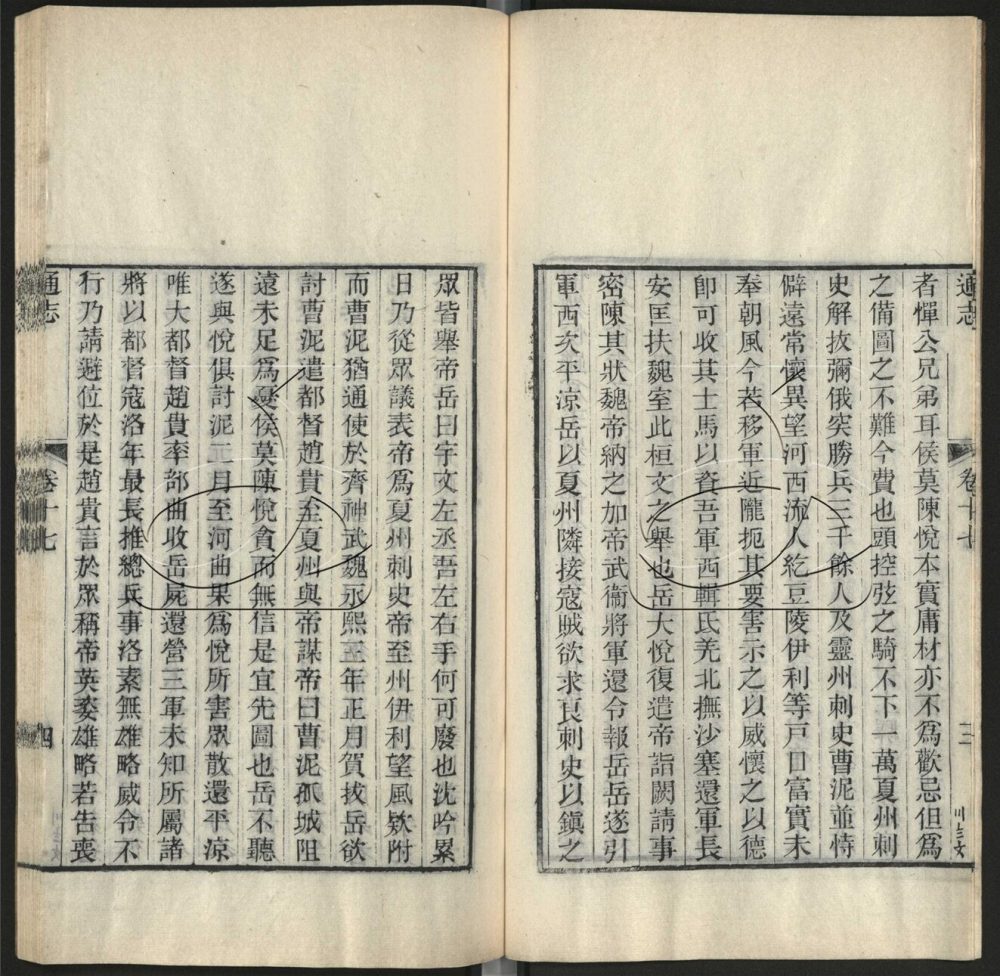 通志
卷十七
三
者憚公兄弟耳侯莫陳悅本實庸材亦不爲歡忌但爲
之備圖之不難今費也頭控弦之騎不下一萬夏州刺
史解拔彌俄突勝兵三千餘人及靈州刺史曹泥並恃
僻遠常懷異望河西流人紇豆陵伊利等戸口富實未
奉朝風今若移軍近隴扼其要害示之以威懷之以德
卽可收其士馬以資吾軍西輯氐羌北撫沙塞還軍長
安匡扶魏室此桓文之舉也岳大悅復遣帝詣闕請事
密陳其狀魏帝納之加帝武衞將軍還令報岳岳遂引
軍西次平涼岳以夏州隣接寇賊欲求良刺史以鎮之
眾皆舉帝岳曰宇文左丞吾左右手何可廢也沈吟累
日乃從眾議表帝爲夏州刺史帝至州伊利望風欵附
而曹泥猶通使於齊神武魏永熙三年正月賀拔岳欲
討曹泥遣都督趙貴至夏州與帝謀帝曰曹泥孤城阻
遠未足爲憂侯莫陳悅貪而無信是宜先圖也岳不聽
遂與悅俱討泥二月至河曲果爲悅所害眾散還平涼
唯大都督趙貴率部曲收岳屍還營三軍未知所屬諸
將以都督寇洛年最長推總兵事洛素無雄略威令不
行乃請避位於是趙貴言於眾稱帝英姿雄略若告喪
通志
卷十七
四